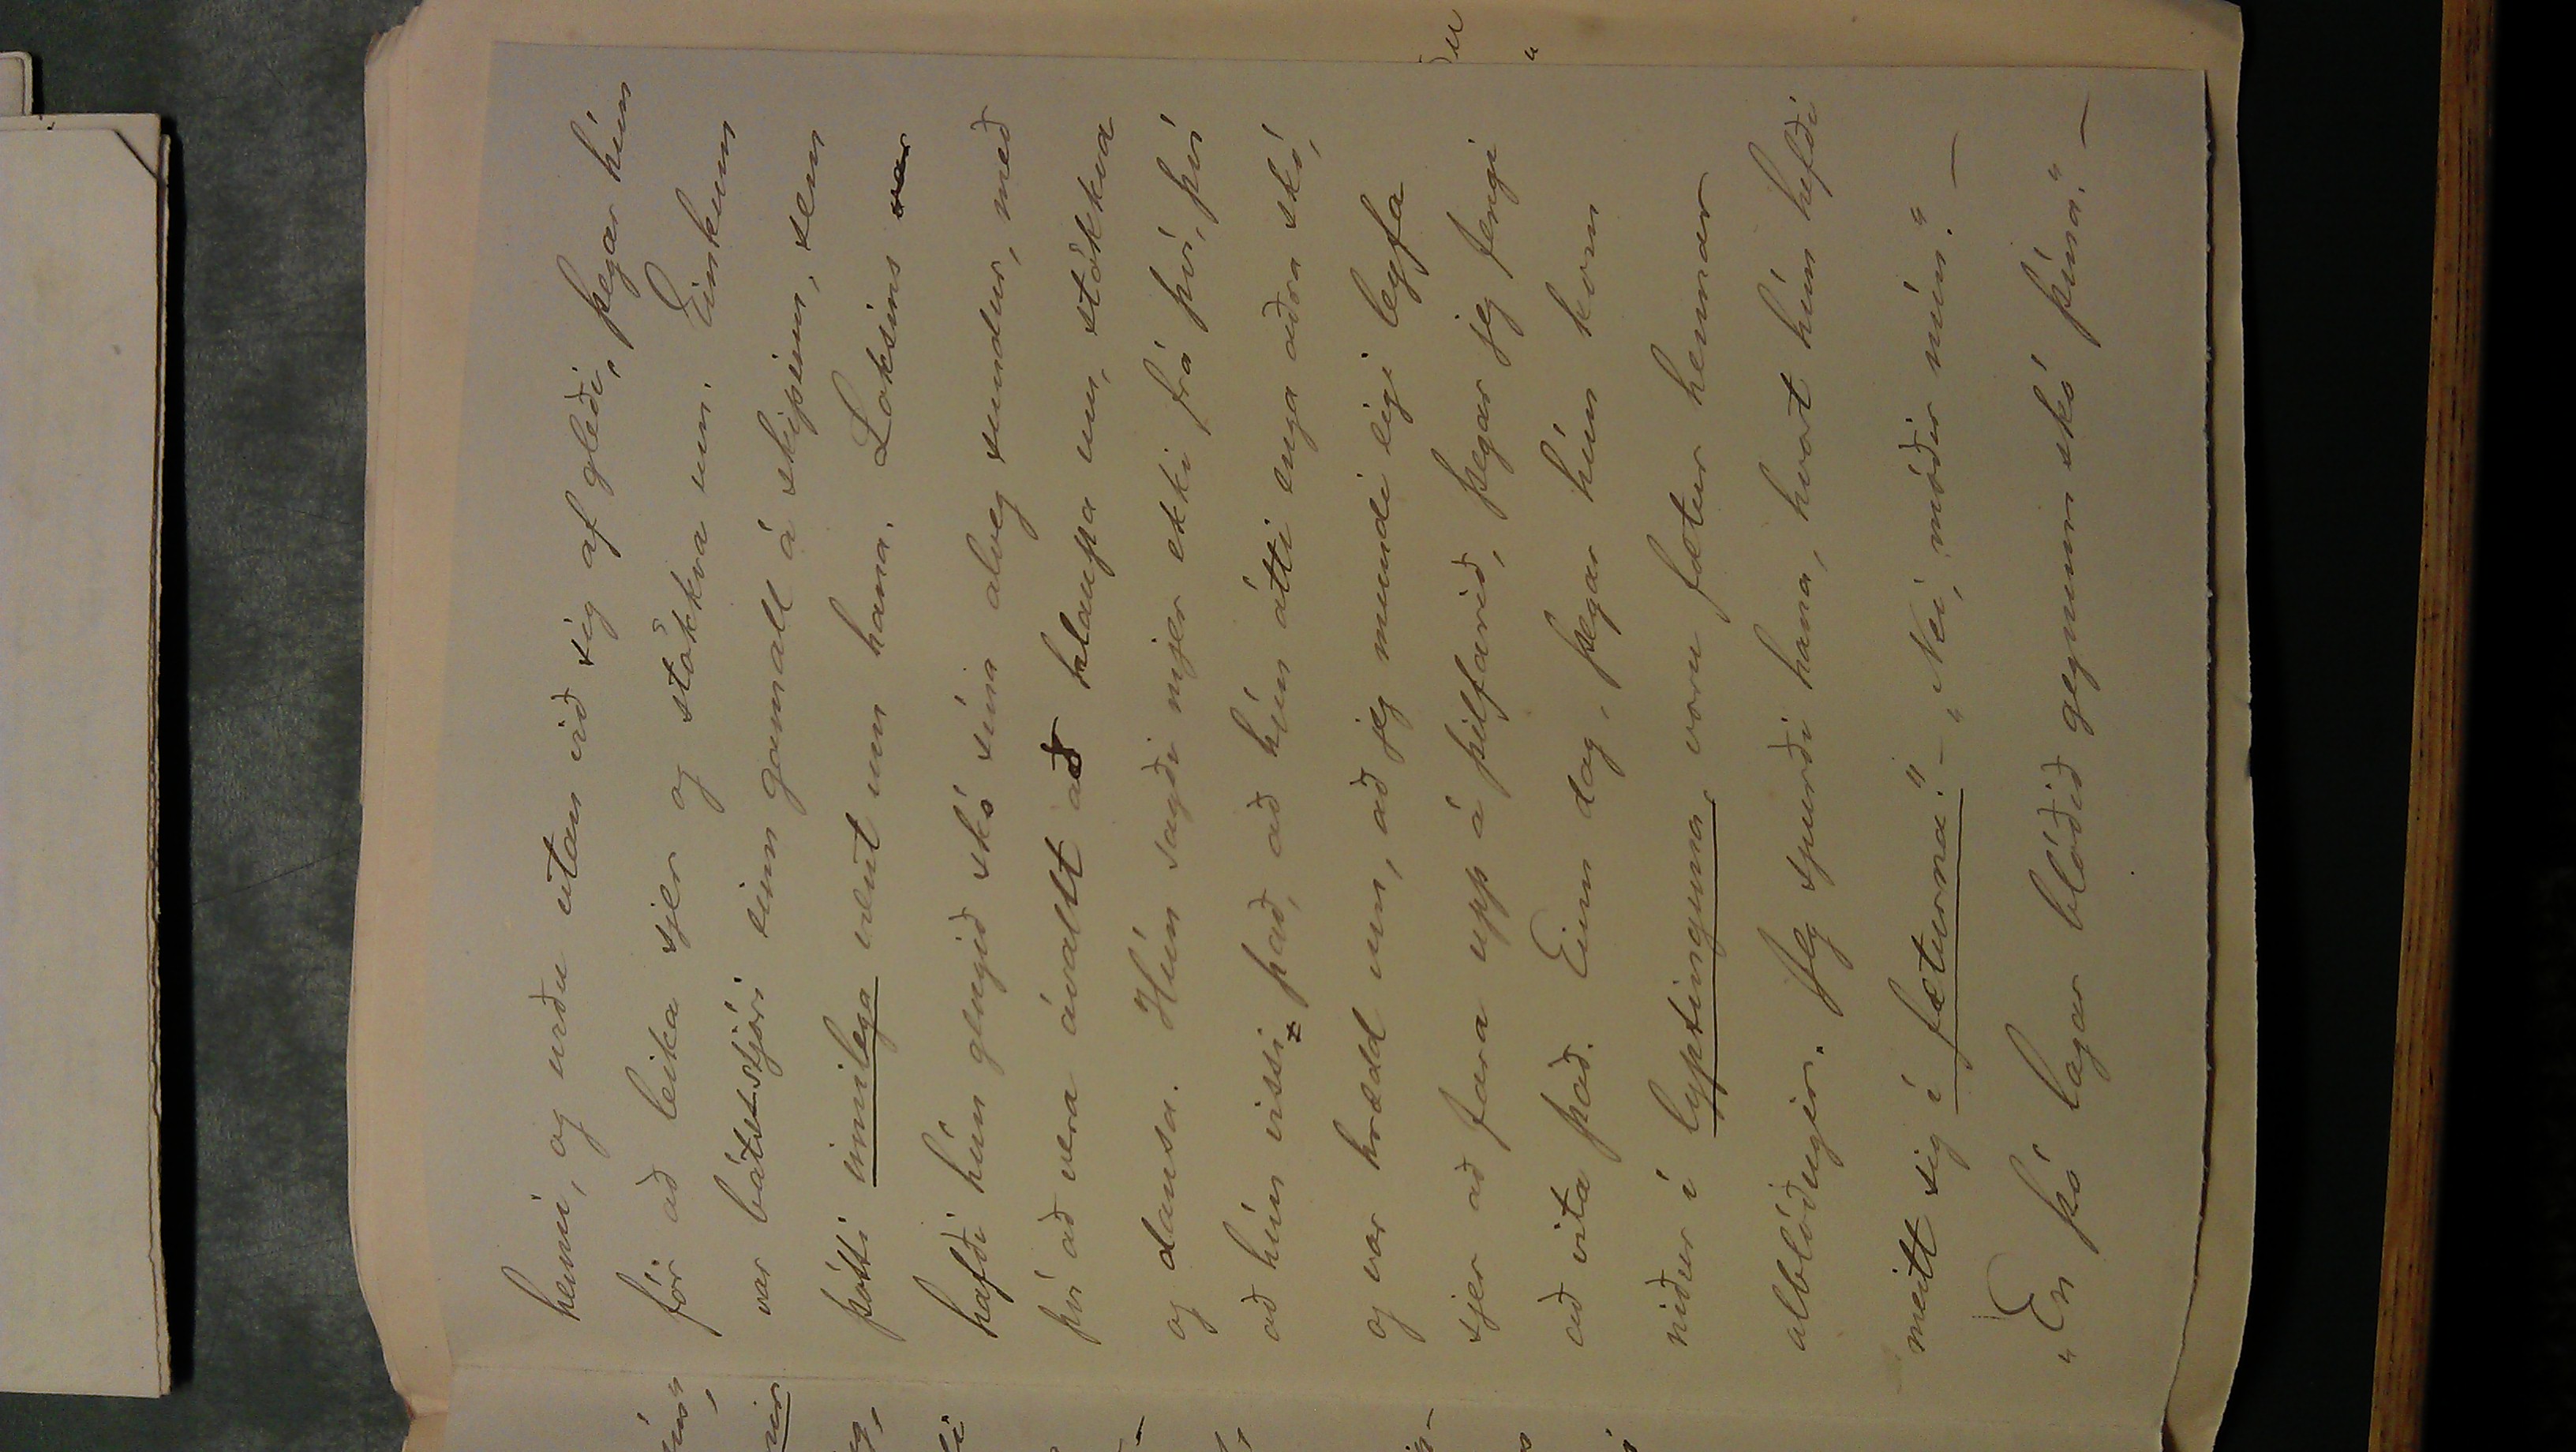 henni, og urðu utan við sig af gleði, þegar hún
fór að leika sjer og stökkva um. Einkum
var bátsstjóri einn gamall á skipinu, sem
þótti innilega vænt um hana. Loksins var
hafði hún gengið skó sína alveg sundur, með
því að vera ávallt að hlaupa um, stökkva
og dansa. Hún sagði mjer ekki frá því, því
að hún vissi það, að hún átti enga aðra skó,
og var hrædd um, að jeg mundi eigi leyfa
sjer að fara upp á þilfarið, þegar jeg fengi
að vita það. Einn dag, þegar hún kom
niður í lyptinguna, voru fætur hennar
alblóðugir. Jeg spurði hana, hvort hún hefði
meitt sig í fæturna." – „Nei, móðir mín." –
„En þó lagar blóðið gegnum skó þína." –